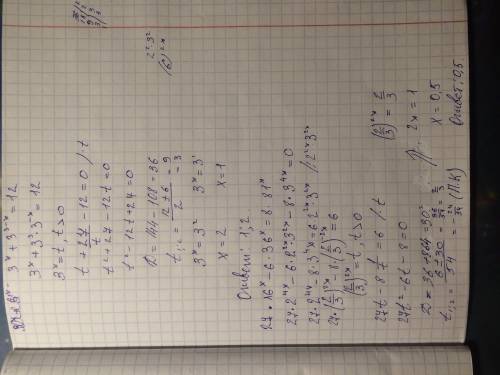 3ˣ + 3³⁻ˣ = 12
3ˣ + 3³·3⁻ˣ = 12
3ˣ = t, t > 0
t + 27/t - 12 = 0 /·t
t² + 27 - 12t = 0
t² - 12t + 27 = 0
D = 144 - 108 = 36
t₁;₂ = (12 ± 6)/2 = 9
= 3
3ˣ = 3² 3ˣ = 3¹
x = 2 x = 1
Ответ: 1; 2
2²·3²
(6)²ˣ
27·16ˣ - 6·36ˣ = 8·81ˣ
27·2⁴ˣ - 6·2²ˣ·3²ˣ - 8·3⁴ˣ = 0
27·2⁴ˣ - 8·3⁴ˣ = 6·2²ˣ3²ˣ /:2²ˣ3²ˣ
27·(2/3)²ˣ - 8·(3/2)²ˣ = 6
(2/3)²ˣ = t, t > 0
27t - 8/t = 6 /·t
27t² - 6t - 8 = 0
D = 36 + 864 = 30²
t₁;₂ = (6 ± 30)/54 = 36/54 = 2/3
= -24/54 (П.К)
(2/3)²ˣ = 2/3
2x = 1
x = 0,5
Ответ: 0,5